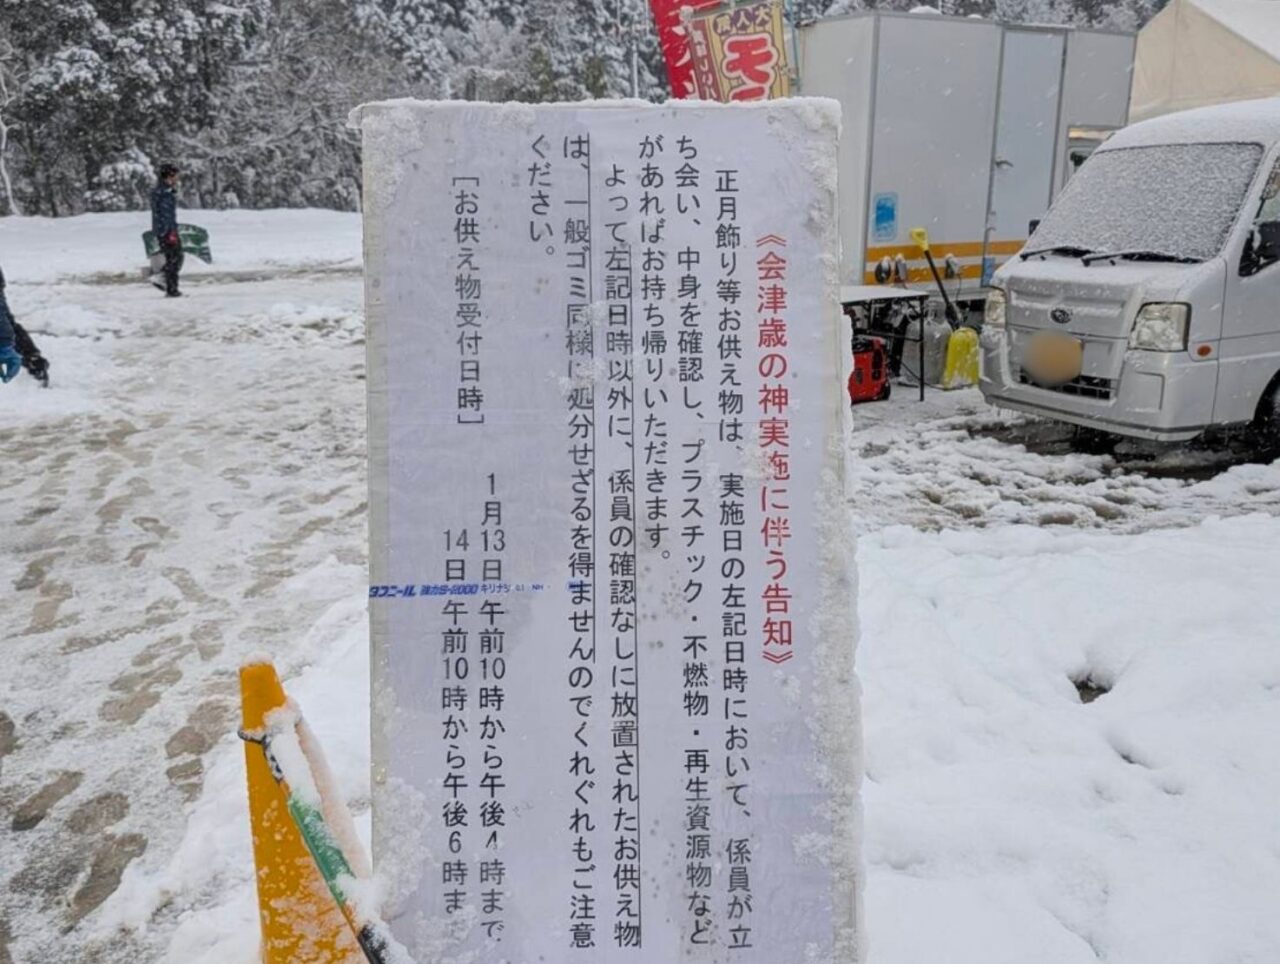 《会津歳の神実施に伴う告知》
正月飾り等お供え物は、実施日の左記日時において、係員が立
ち会い、中身を確認し、プラスチック・不燃物・再生資源物など
があればお持ち帰りいただきます。
よって左記日時以外に、係員の確認なしに放置されたお供え物
は、一般ゴミ同様に処分せざるを得ませんのでくれぐれもご注意
ください。
［お供え物受付日時］
1月13日 午前10時から午後4時まで
14日 午前10時から午後6時ま
タフニール 強力S-2000 キリナシ 0.1 NH
モ